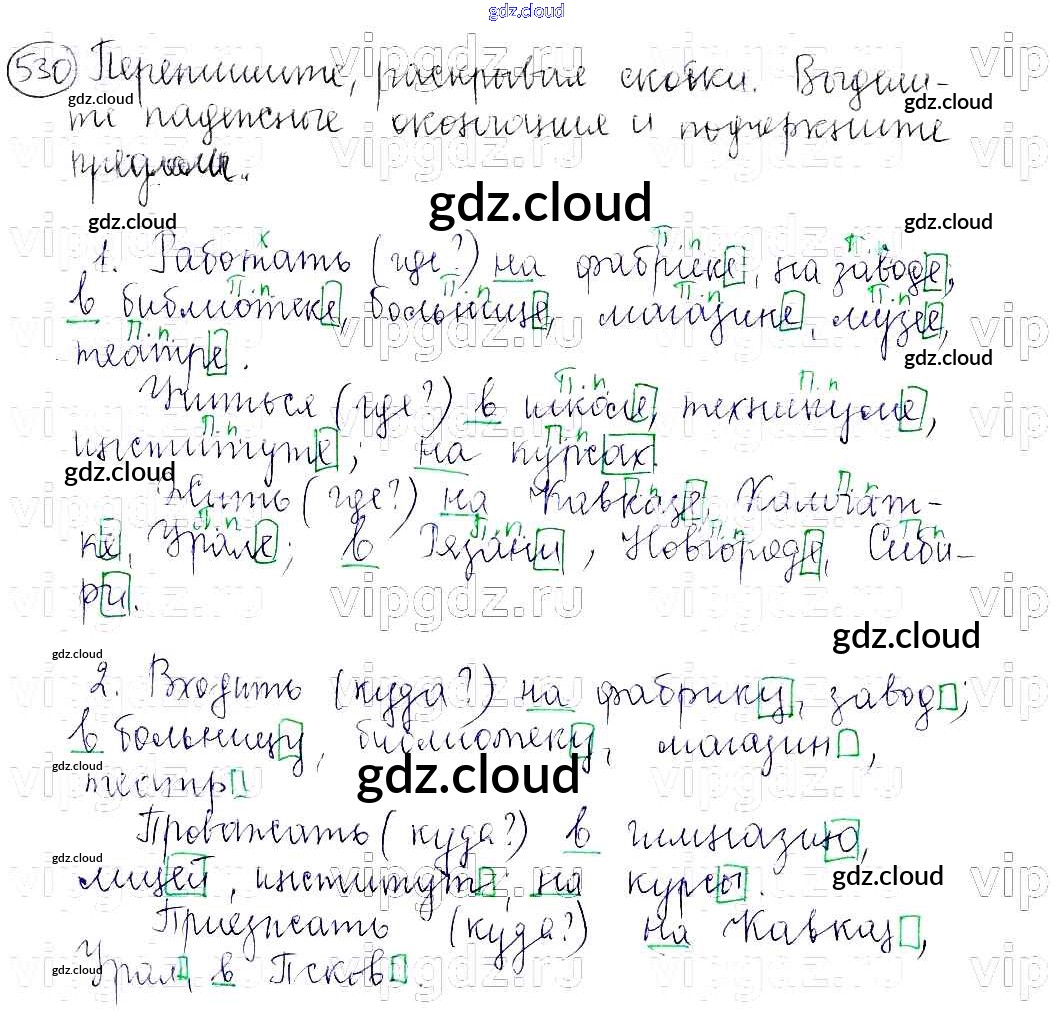 gdz.cloud
530 Перепишите, раскрывая скобки. Выдели-
те падежные окончания и подчеркните
предлоги.
gdz.cloud
gdz.cloud
gdz.cloud
gdz.cloud
gdz.cloud
1. Работать (где?) на фабрике, на заводе,
П.п П.п
в библиотеке, больнице, магазине, музее,
П.п П.п П.п
театре.
П.п
gdz.cloud
Учиться (где?) в школе, техникуме,
П.п П.п
институте; на курсах.
П.п П.п
gdz.cloud
Жить (где?) на Кавказе, Камчат-
П.п П.п
ке, Урале; в Рязани, Новгороде, Сиби-
П.п П.п П.п П.п
ри.
gdz.cloud
gdz.cloud
2. Входить (куда?) на фабрику, завод;
в больницу, библиотеку, магазин,
gdz.cloud
gdz.cloud
театр
Провожать (куда?) в гимназию,
gdz.cloud
gdz.cloud
лицей, институт; на курсы.
Приезжать (куда?) на Кавказ,
gdz.cloud
Урал, в Псков.
vipgdz.ru